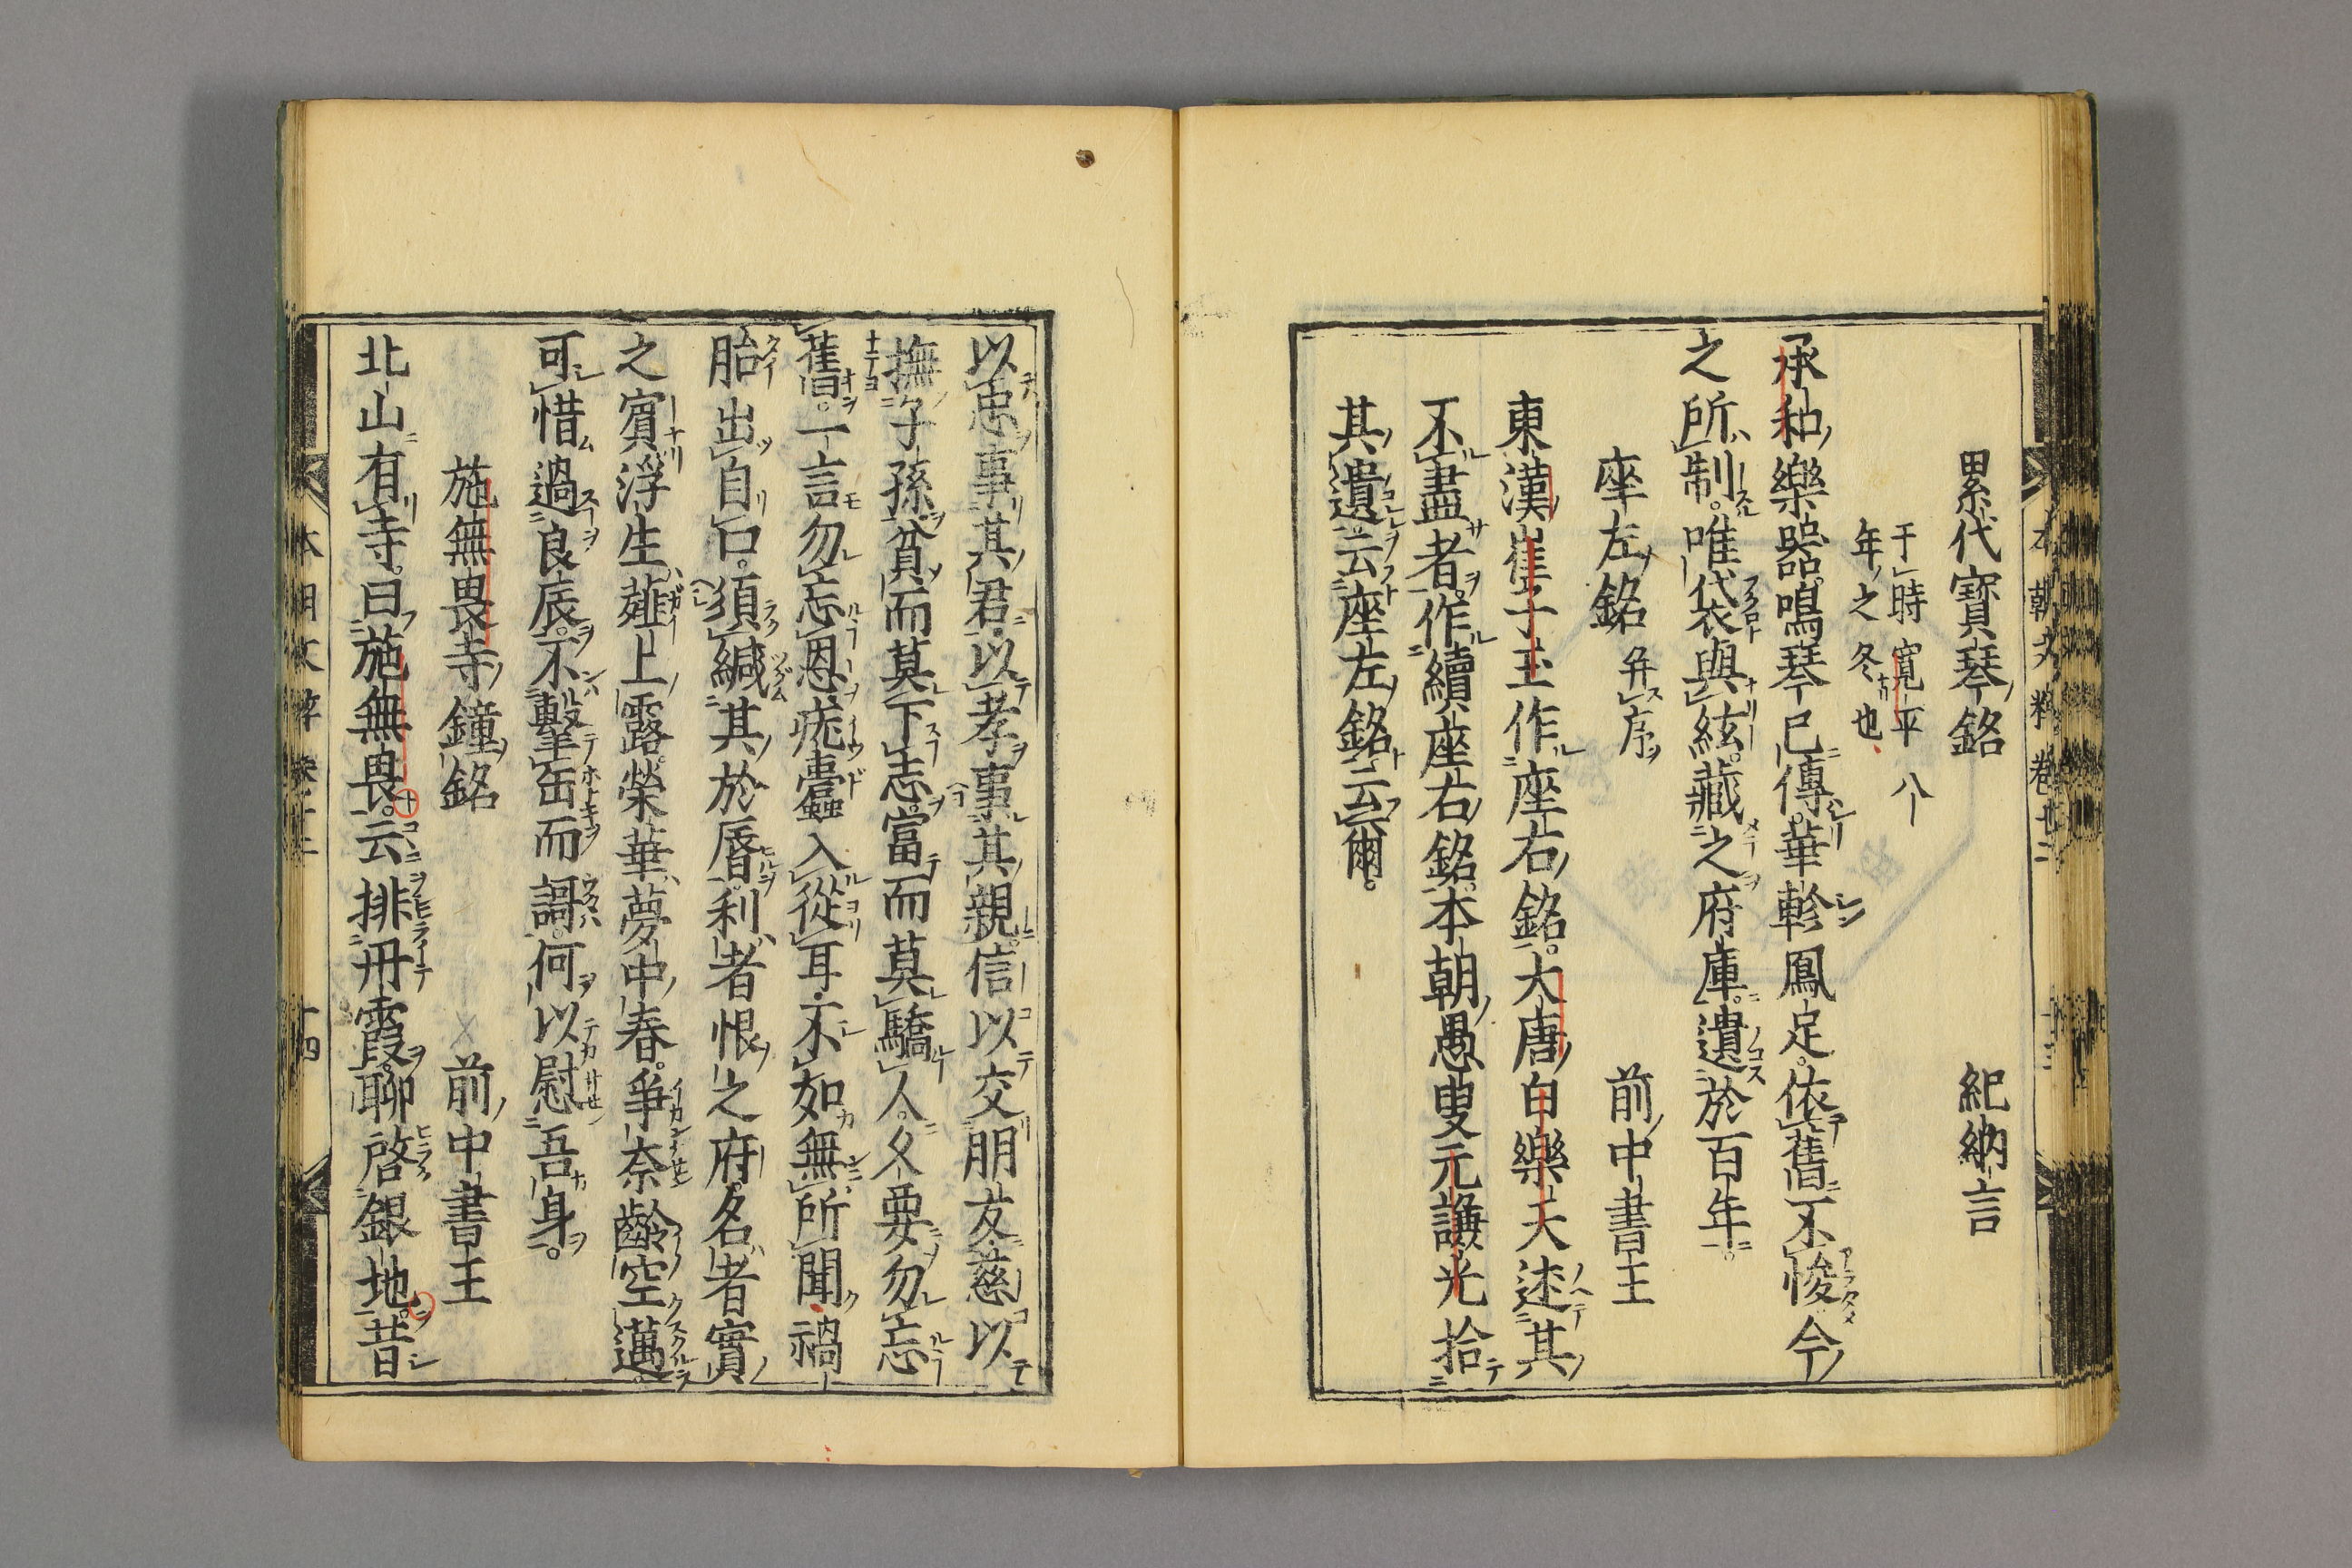 累代寶琴銘　紀納言
于時寛平八
年之冬也
承和樂器。鳴琴已傳。華軫鳳足。依舊不悛。今
之所制。唯袋與絃。藏之府庫。遺於百年。
座左銘并序　前中書王
東漢崔子玉作座右銘。大唐白樂天述其
不盡者。作續座右銘。本朝愚叟元謙光拾
其遺。云座左銘。云爾。
本朝文粹卷十二　十三
以忠事其君。以孝事其親。信以交朋友。慈以
撫子孫。貧而莫下志。富而莫驕人。久要勿忘
舊。一言勿忘恩。疣蠹入從耳。不如無所聞。禍
胎出自口。須緘其於脣。利者恨之府。名者實
之賓。浮生薤上露。榮華夢中春。爭奈齡空邁。
可惜過良辰。不擊缶而謌。何以慰吾身。
施無畏寺鐘銘　前中書王
北山有寺。曰施無畏。云排丹霞。聊啓銀地。昔
本朝文粹卷十二　十四